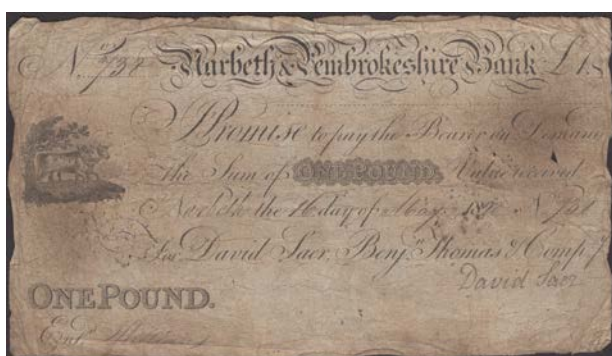 No. 738 Narbeth & Pembrokeshire Bank £1.
I Promise to pay the Bearer on Demand
the Sum of ONE POUND. Value received
Narbeth the 16 day of May No. 738
For David Saer, Benjn. Thomas & Compy.
David Saer
ONE POUND.
Entd.